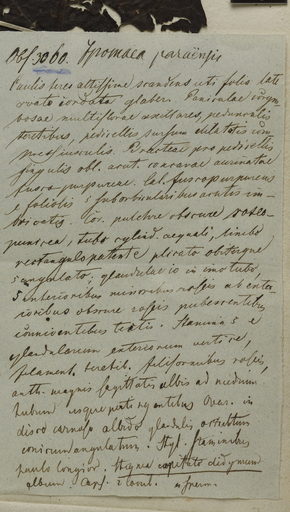 Obs. 3060. Ipomaea paraënsis
Caulis teres altissime scandens uti folia late
ovato cordata glaber. Paniculae corym-
bosae multiflorae axillares, pedunculis
teretibus, pedicellis sursum dilatatis com
pressiusculis. Bracteae pro pedicellis
singulis obl. acut. concavae carinatae
fusco purpureae. Cal. fuscopurpureus
e foliolis 5 suborbicularibus acutis im-
bricatis. Cor. pulchre obscure roseo
purpurea, tubo cylind. aequali, limbo
rectangulo patente plicato obtusque
5 angulato; glandulae 10 in imo tubo,
5 interioribus minoribus roseis ab exter-
ioribus obscure roseis pubescentibus
conniventibus tectis. Stamina 5 e
glandularum exteriorum vertice,
filament. brevib. filiformibus roseis,
anth. magnis sagittatis albis ad medium
tubum usque pertingentibus Ovar. in
disco carnoso albido glandulis
conicum angulatum. Styl. staminibus
paulo longior. Stigma capitato didymum
album. Caps. 2 locul. sperm.